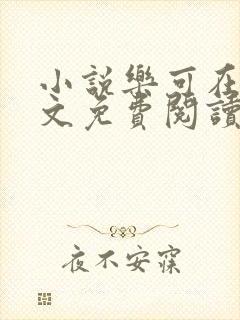 小說樂可在
文免費閱讀
夜不安寐